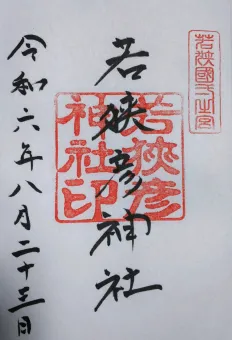 若狹國一之宮
若狭彦神社
若狹彦
神社印
令和六年八月二十三日